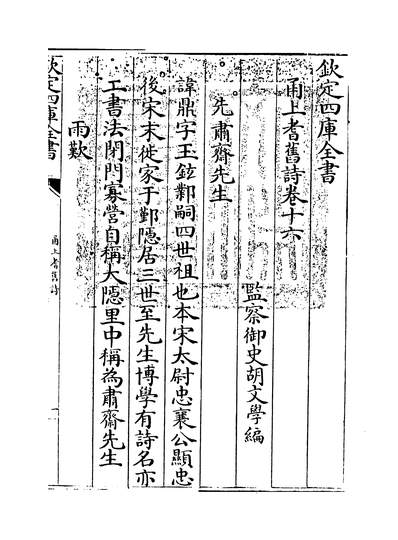 欽定四庫全書
甬上耆舊詩卷十六
監察御史胡文學編
先肅齋先生
諱鼎字玉鉉鄴嗣四世祖也本宋太尉忠襄公顯忠
後宋末徙家于鄞隠居三世至先生博學有詩名亦
工書法閉門寡營自稱大隠里中稱為肅齋先生
雨歎
欽定四庫全書
甬上耆舊詩
一